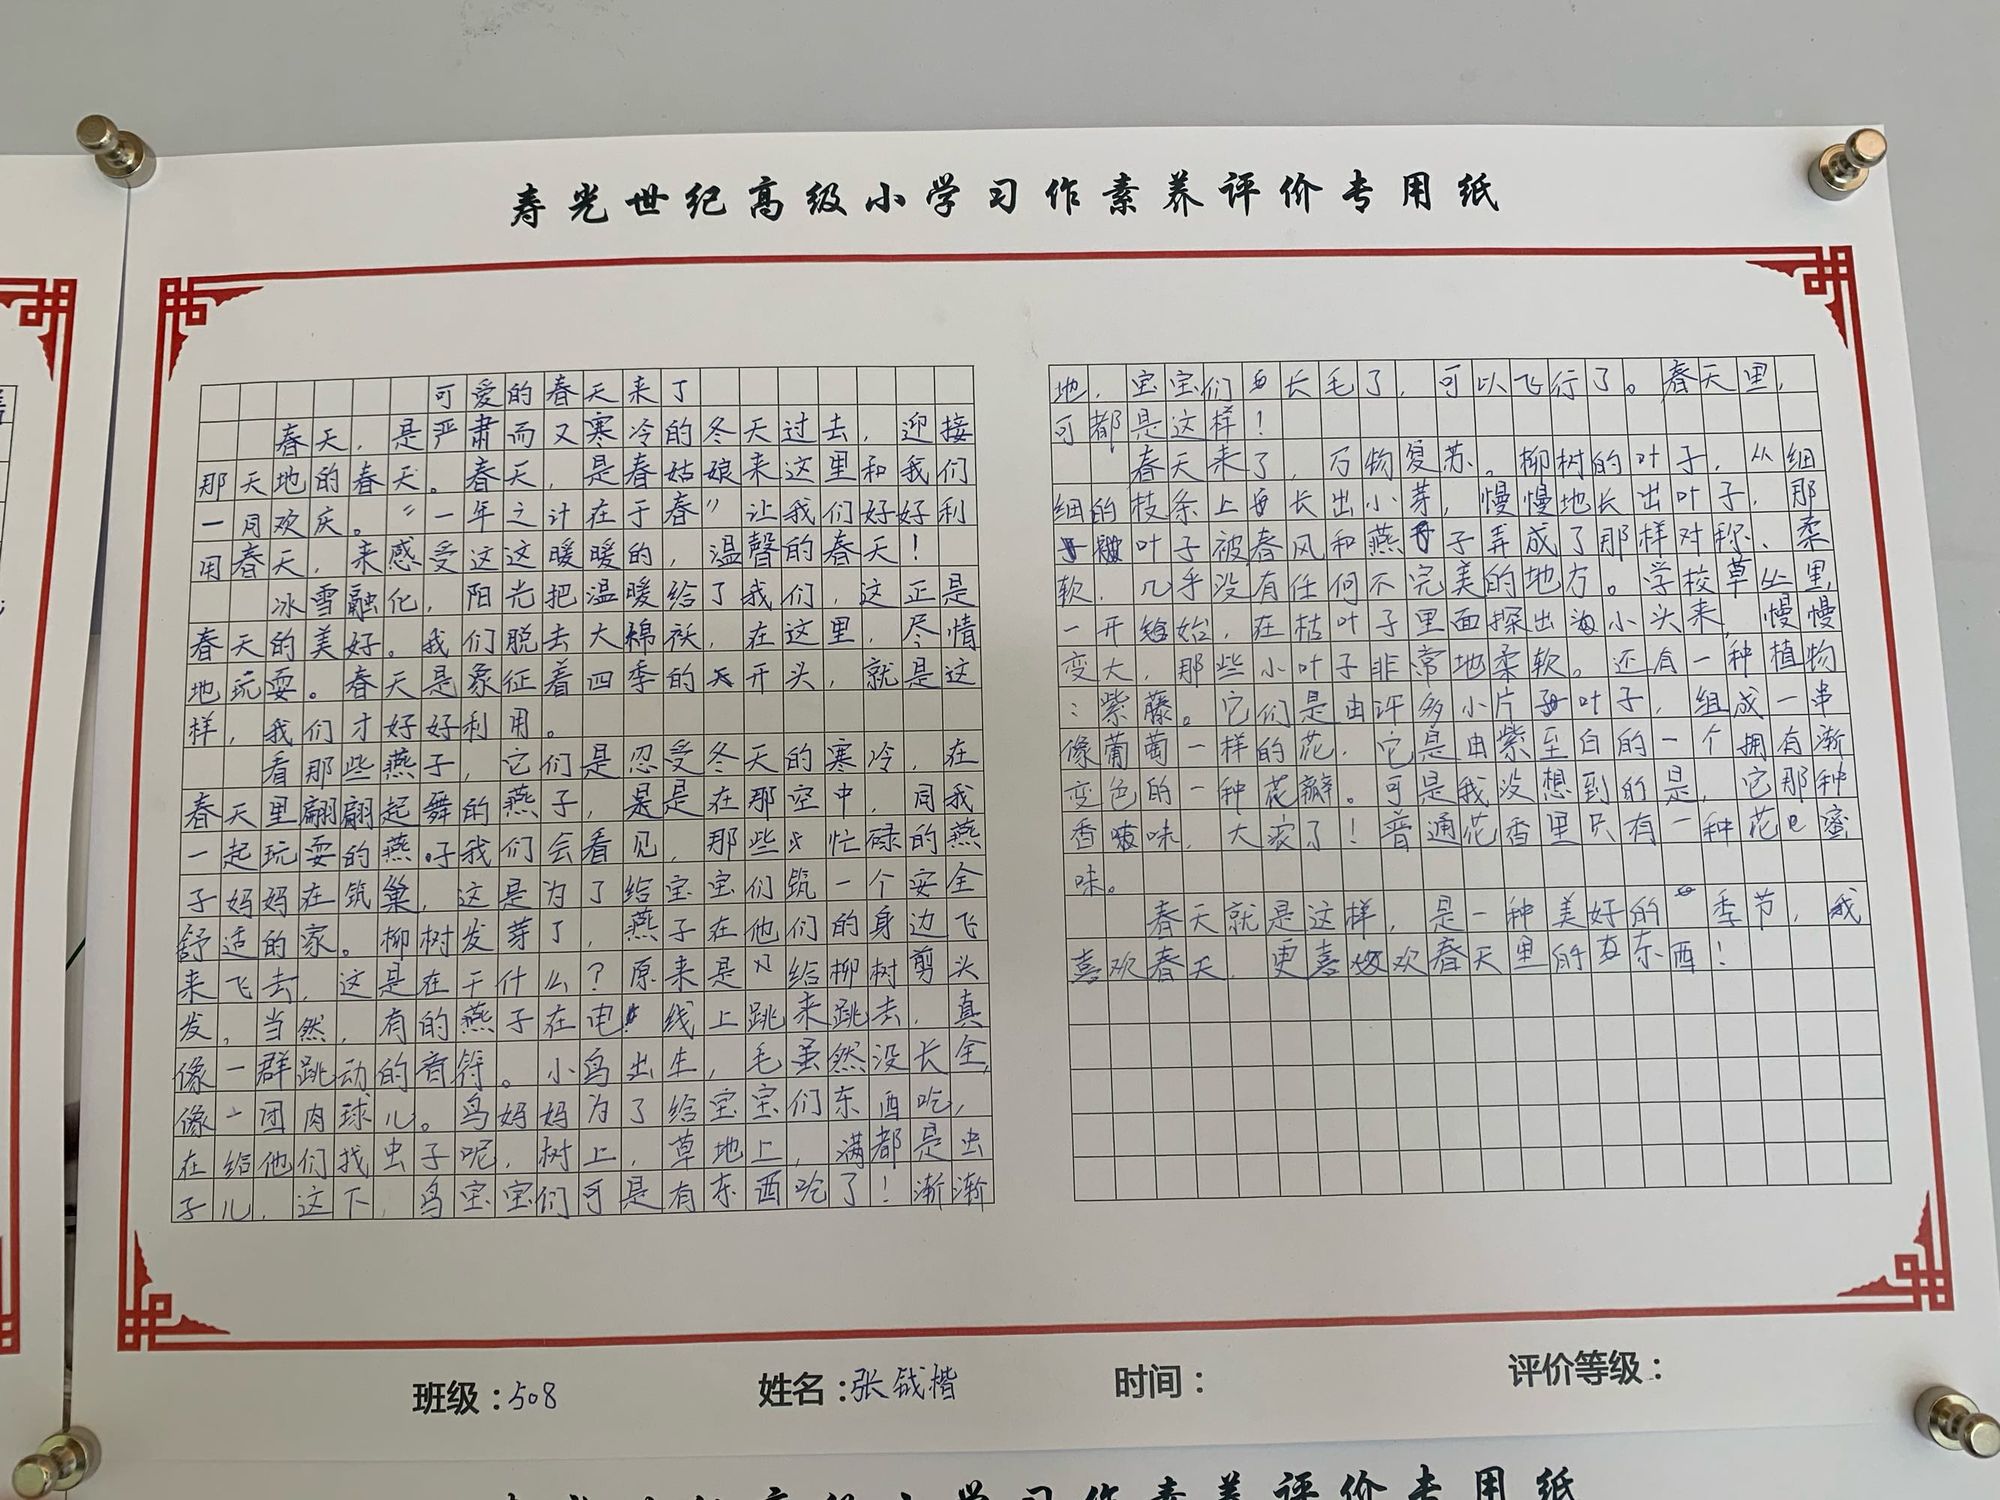 寿光世纪高级小学习作素养评价专用纸
可爱的春天来了
春天，是严肃而又寒冷的冬天过去，迎接
那天地的春天。春天，是春姑娘来这里和我们
一同欢庆。“一年之计在于春”让我们好好利
用春天，来感受这这暖暖的，温馨的春天！
冰雪融化，阳光把温暖给了我们，这正是
春天的美好。我们脱去大棉袄，在这里，尽情
地玩耍。春天是象征着四季的开头，就是这
样，我们才好好利用。
看那些燕子，它们是忍受冬天的寒冷，在
春天里翩翩起舞的燕子，是是在那空中，同我
一起玩耍的燕子。我们会看见，那些忙碌的燕
子妈妈在筑巢，这是为了给宝宝们筑一个安全
舒适的家。柳树发芽了，燕子在他们的身边飞
来飞去，这是在干什么？原来是给柳树剪头
发，当然，有的燕子在电线上跳来跳去，真
像一群跳动的音符。小鸟出生，毛虽然没长全，
像一团肉球儿。鸟妈妈为了给宝宝们东西吃，
在给他们找虫子呢，树上，草地上，满都是虫
子儿，这下，鸟宝宝们可是有东西吃了！渐渐
地，宝宝们长毛了，可以飞行了。春天里，
可都是这样！
春天来了，万物复苏。柳树的叶子，从细
细的枝条上长出小芽，慢慢地长出叶子，那
叶子被春风和燕子弄成了那样对称、柔
软，几乎没有任何不完美的地方。学校草丛里
一开始，在枯叶子里面探出小头来，慢慢
变大，那些小叶子非常地柔软。还有一种植物
：紫藤。它们是由许多小片叶子，组成一串
像葡萄一样的花，它是由紫至白的一个拥有渐
变色的一种花瓣。可是我没想到的是，它那种
香味，大家了！普通花香里只有一种花蜜
味。
春天就是这样，是一种美好的季节，我
喜欢春天，更喜欢春天里的东西！
班级：508
姓名：张钺楷
时间：
评价等级：